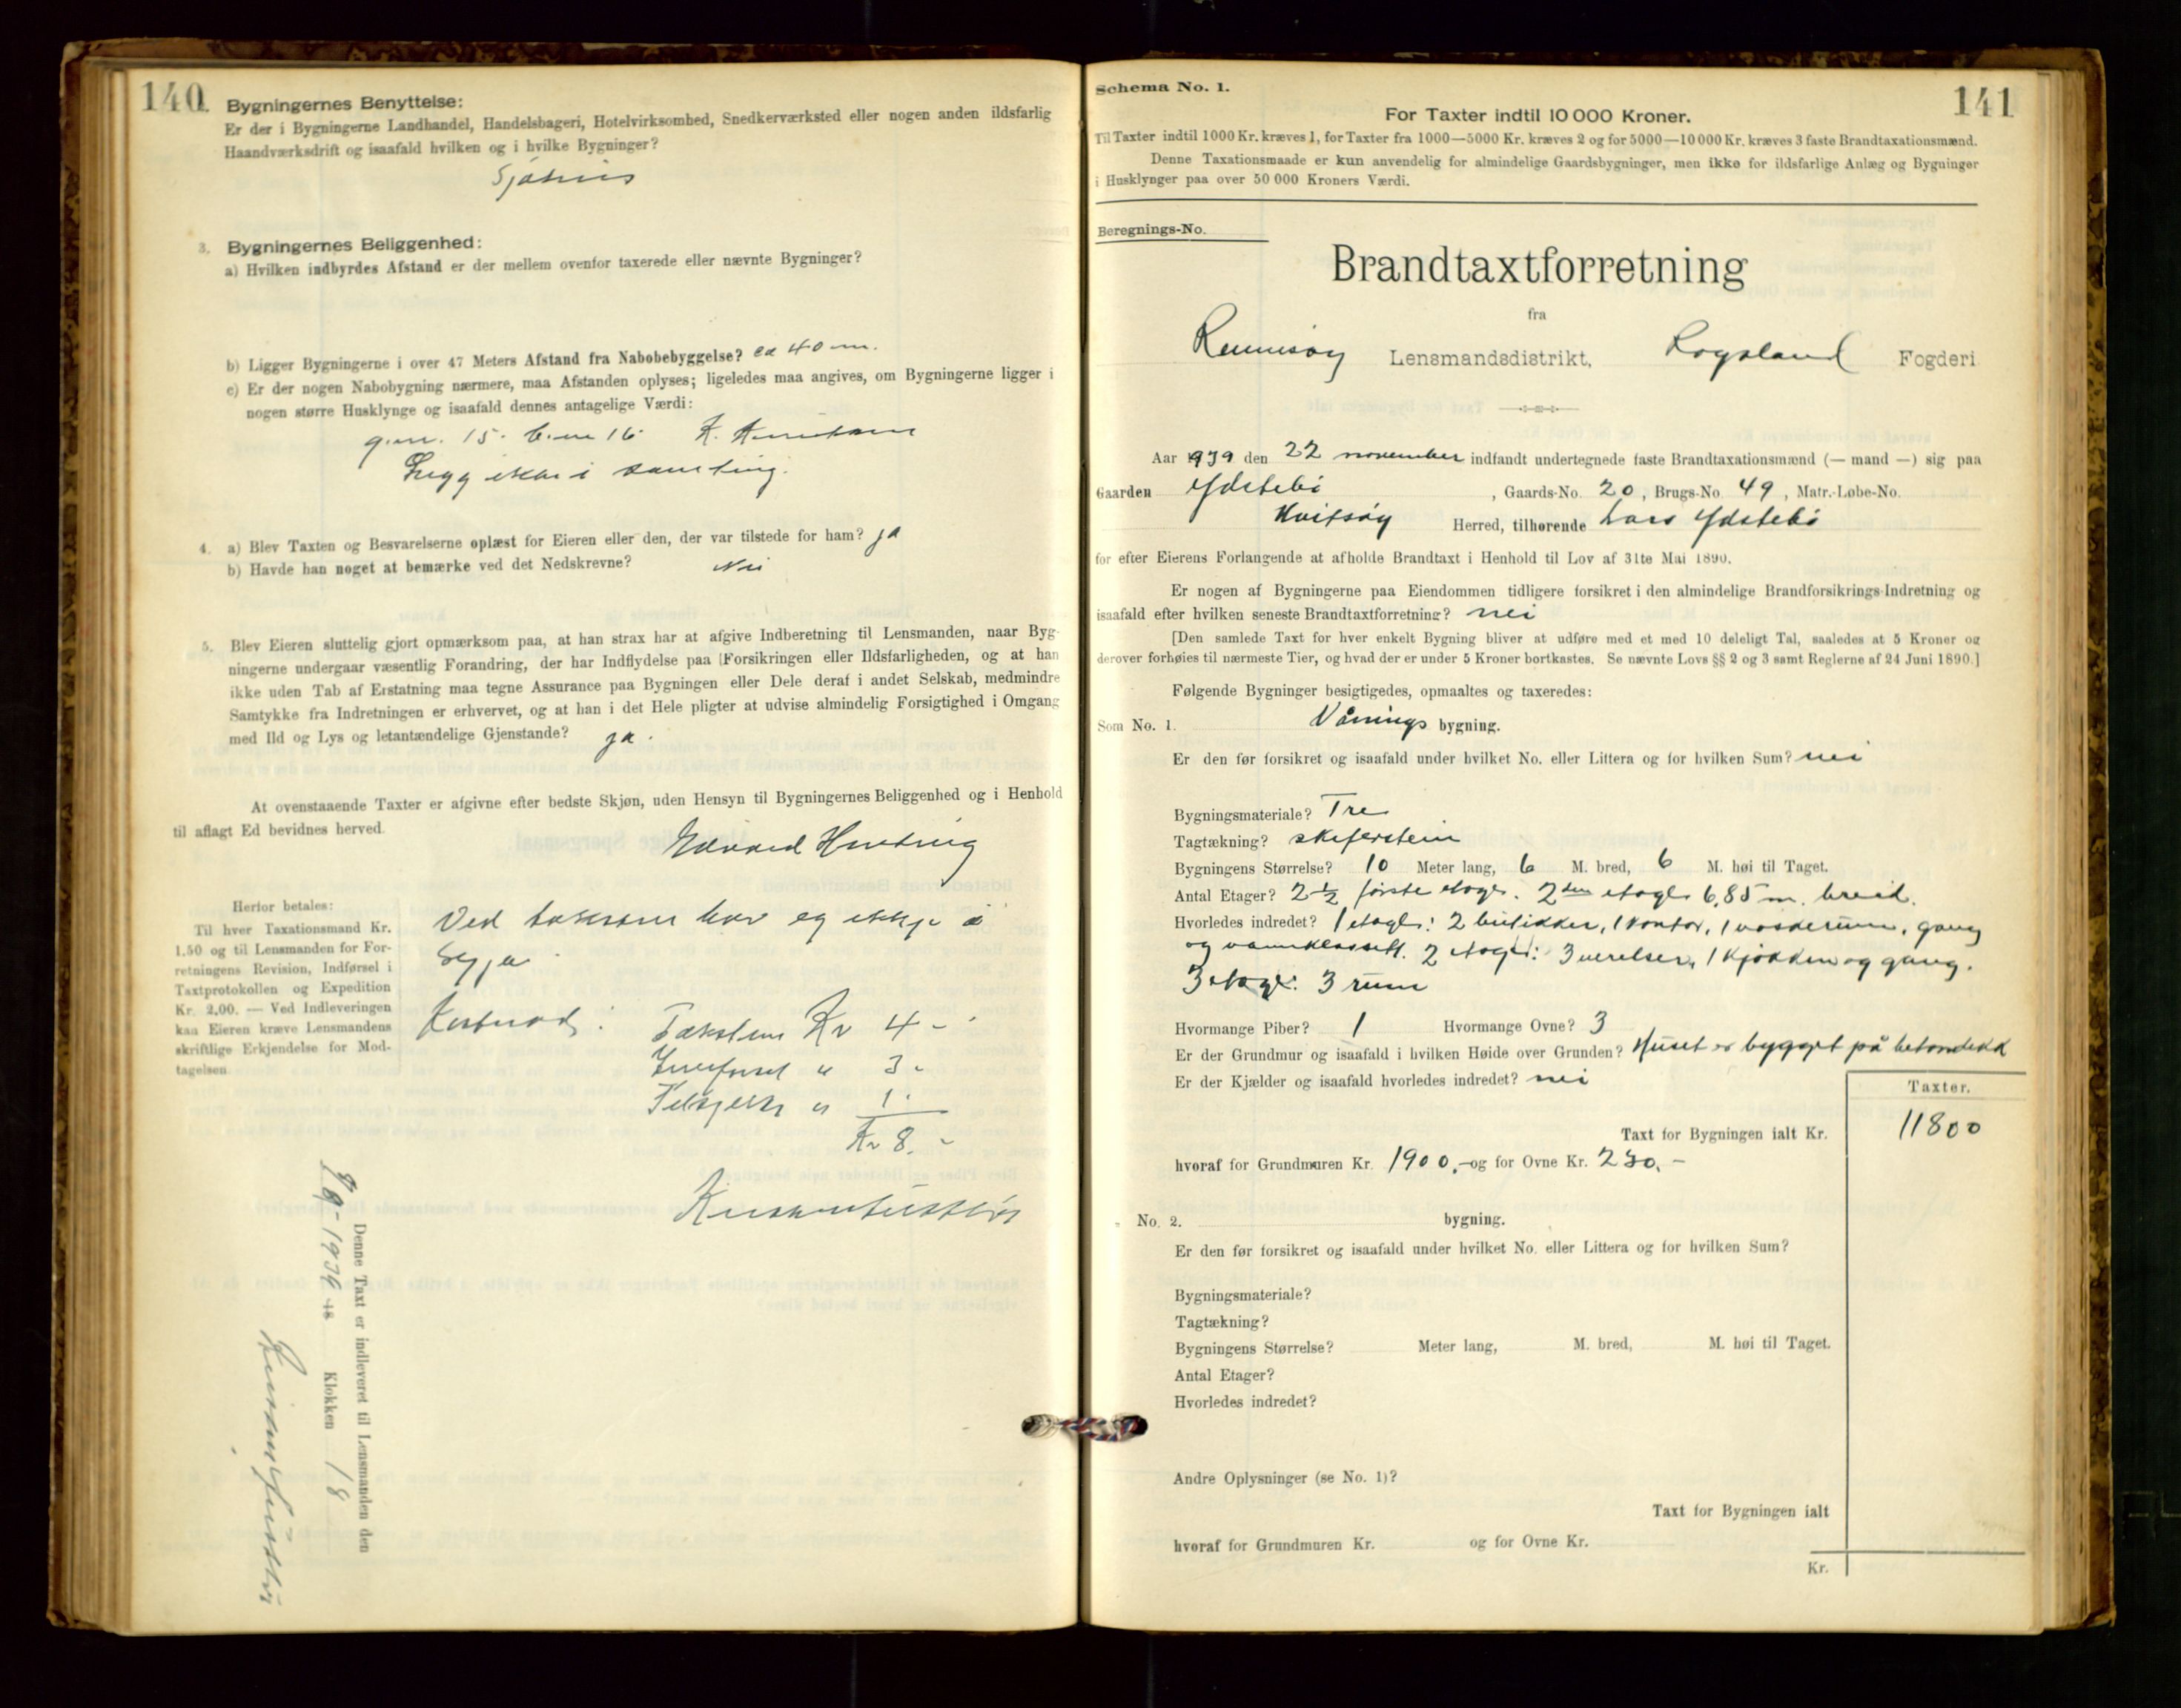 140.
Bygningernes Benyttelse:
Er der i Bygningerne Landhandel, Handelsbageri, Hotelvirksomhed, Snedkerværksted eller nogen anden ildsfarlig
Haandværksdrift og isaafald hvilken og i hvilke Bygninger?
Sjøhus
3. Bygningernes Beliggenhed:
a) Hvilken indbyrdes Afstand er der mellem ovenfor taxerede eller nævnte Bygninger?
b) Ligger Bygningerne i over 47 Meters Afstand fra Nabobebyggelse? ca 40 m.
c) Er der nogen Nabobygning nærmere, maa Afstanden oplyses; ligeledes maa angives, om Bygningerne ligger i
nogen større Husklynge og isaafald dennes antagelige Værdi:
g.nr. 15. b.nr 16. K.
Ligg ikkje i
4. a) Blev Taxten og Besvarelserne oplæst for Eieren eller den, der var tilstede for ham? ja
b) Havde han noget at bemærke ved det Nedskrevne? Nei
5. Blev Eieren sluttelig gjort opmærksom paa, at han strax har at afgive Indberetning til Lensmanden, naar Byg-
ningerne undergaar væsentlig Forandring, der har Indflydelse paa Forsikringen eller Ildsfarligheden, og at han
ikke uden Tab af Erstatning maa tegne Assurance paa Bygningen eller Dele deraf i andet Selskab, medmindre
Samtykke fra Indretningen er erhvervet, og at han i det Hele pligter at udvise almindelig Forsigtighed i Omgang
med Ild og Lys og letantændelige Gjenstande? ja.
At ovenstaaende Taxter er afgivne efter bedste Skjøn, uden Hensyn til Bygningernes Beliggenhed og i Henhold
til aflagt Ed bevidnes herved.
Edvard
Herfor betales:
Til hver Taxationsmand Kr.
1.50 og til Lensmanden for For-
retningens Revision, Indførsel i
Taxtprotokollen og Expedition
Kr. 2.00. — Ved Indleveringen
kan Eieren kræve Lensmandens
skriftlige Erkjendelse for Mod-
tagelsen.
Ved taksten har eg ikkje å
segja
Kostnad: Taksten Kr 4 -
Innførsel " 3 -
" 1.
Kr 8. -
Denne Taxt er indleveret til Lensmanden den
1939 18 Klokken 18
Schema No. 1.
141
For Taxter indtil 10 000 Kroner.
Til Taxter indtil 1000 Kr. kræves 1, for Taxter fra 1000—5000 Kr. kræves 2 og for 5000—10 000 Kr. kræves 3 faste Brandtaxationsmænd.
Denne Taxationsmaade er kun anvendelig for almindelige Gaardsbygninger, men ikke for ildsfarlige Anlæg og Bygninger
i Husklynger paa over 50 000 Kroners Værdi.
Beregnings-No.
Brandtaxtforretning
fra
Rennesøy Lensmandsdistrikt, Rogaland Fogderi
Aar 1939 den 22 november indfandt undertegnede faste Brandtaxationsmænd (— mand —) sig paa
Gaarden Ydstebø , Gaards-No. 20, Brugs-No. 49, Matr.-Løbe-No.
Kvitsøy Herred, tilhørende Lars Ydstebø
for efter Eierens Forlangende at afholde Brandtaxt i Henhold til Lov af 31te Mai 1890.
Er nogen af Bygningerne paa Eiendommen tidligere forsikret i den almindelige Brandforsikrings-Indretning og
isaafald efter hvilken seneste Brandtaxtforretning? nei
[Den samlede Taxt for hver enkelt Bygning bliver at udføre med et med 10 deleligt Tal, saaledes at 5 Kroner og
derover forhøies til nærmeste Tier, og hvad der er under 5 Kroner bortkastes. Se nævnte Lovs §§ 2 og 3 samt Reglerne af 24 Juni 1890.]
Følgende Bygninger besigtigedes, opmaaltes og taxeredes:
Som No. 1. Vånings bygning.
Er den før forsikret og isaafald under hvilket No. eller Littera og for hvilken Sum? nei
Bygningsmateriale? Tre
Tagtækning? skiferstein
Bygningens Størrelse? 10 Meter lang, 6 M. bred, 6 M. høi til Taget.
Antal Etager? 2 ½ første etage. 2den etage 6,85 m. breid.
Hvorledes indredet? 1 etage: 2 butikker, 1 kontor, 1 vaskerum, gang
og vannklosett. 2 etage: 3 verelser, 1 kjøkken og gang.
3 etage: 3 rum
Hvormange Piber? 1 Hvormange Ovne? 3
Er der Grundmur og isaafald i hvilken Høide over Grunden? Huset er bygget på betondekk
Er der Kjælder og isaafald hvorledes indredet? nei
Taxter.
Taxt for Bygningen ialt Kr. 11800
hvoraf for Grundmuren Kr. 1900,- og for Ovne Kr. 230,-
No. 2. bygning.
Er den før forsikret og isaafald under hvilket No. eller Littera og for hvilken Sum?
Bygningsmateriale?
Tagtækning?
Bygningens Størrelse? Meter lang, M. bred, M. høi til Taget.
Antal Etager?
Hvorledes indredet?
Andre Oplysninger (se No. 1)?
Taxt for Bygningen ialt
hvoraf for Grundmuren Kr. og for Ovne Kr.
Kr.